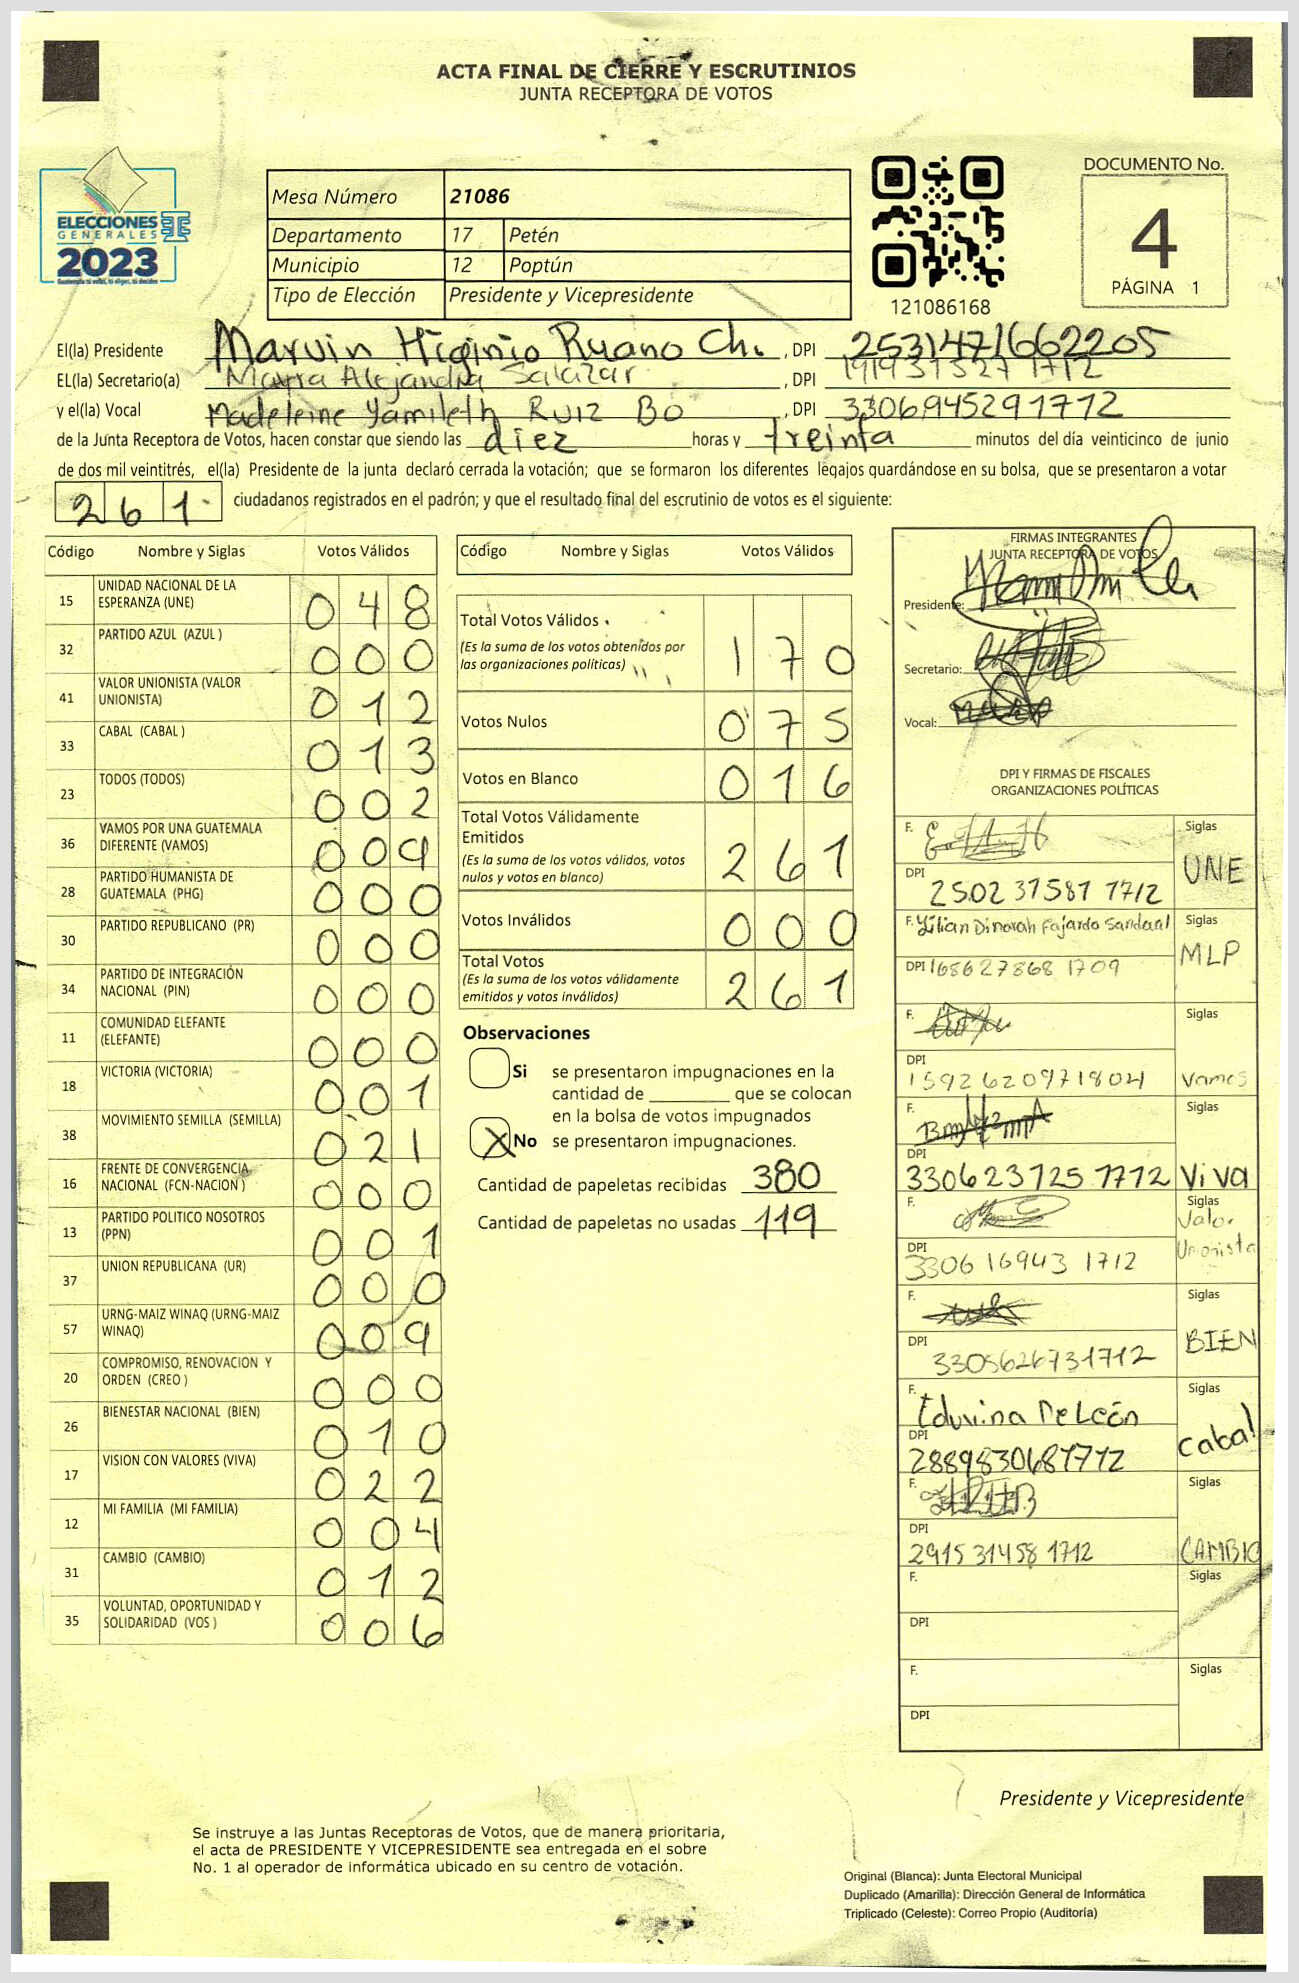 ACTA FINAL DE CIERRE Y ESCRUTINIOS
JUNTA RECEPTORA DE VOTOS
ELECCIONES
GENERALES
2023
Mesa Número 21086
Departamento 17 Petén
Municipio 12 Poptún
Tipo de Elección Presidente y Vicepresidente
121086168
DOCUMENTO No.
4
PÁGINA 1
El(la) Presidente Marvin Higinio Ruano Ch. , DPI 2531471662205
EL(la) Secretario(a) Mayra Alejandra Salazar , DPI
y el(la) Vocal Madeleine Yamileth Ruiz Bo , DPI 3306945291712
de la Junta Receptora de Votos, hacen constar que siendo las diez horas y treinta minutos del día veinticinco de junio
de dos mil veintitrés, el(la) Presidente de la junta declaró cerrada la votación; que se formaron los diferentes legajos guardándose en su bolsa, que se presentaron a votar
261 ciudadanos registrados en el padrón; y que el resultado final del escrutinio de votos es el siguiente:
Código Nombre y Siglas Votos Válidos
15 UNIDAD NACIONAL DE LA ESPERANZA (UNE) 048
32 PARTIDO AZUL (AZUL ) 000
41 VALOR UNIONISTA (VALOR UNIONISTA) 012
33 CABAL (CABAL ) 013
23 TODOS (TODOS) 002
36 VAMOS POR UNA GUATEMALA DIFERENTE (VAMOS) 009
28 PARTIDO HUMANISTA DE GUATEMALA (PHG) 000
30 PARTIDO REPUBLICANO (PR) 000
34 PARTIDO DE INTEGRACIÓN NACIONAL (PIN) 000
11 COMUNIDAD ELEFANTE (ELEFANTE) 000
18 VICTORIA (VICTORIA) 001
38 MOVIMIENTO SEMILLA (SEMILLA) 021
16 FRENTE DE CONVERGENCIA NACIONAL (FCN-NACION ) 000
13 PARTIDO POLITICO NOSOTROS (PPN) 001
37 UNION REPUBLICANA (UR) 000
57 URNG-MAIZ WINAQ (URNG-MAIZ WINAQ) 009
20 COMPROMISO, RENOVACION Y ORDEN (CREO ) 000
26 BIENESTAR NACIONAL (BIEN) 010
17 VISION CON VALORES (VIVA) 022
12 MI FAMILIA (MI FAMILIA) 004
31 CAMBIO (CAMBIO) 012
35 VOLUNTAD, OPORTUNIDAD Y SOLIDARIDAD (VOS ) 006
Código Nombre y Siglas Votos Válidos
Total Votos Válidos 170
(Es la suma de los votos obtenidos por
las organizaciones políticas)
Votos Nulos 075
Votos en Blanco 016
Total Votos Válidamente
Emitidos 261
(Es la suma de los votos válidos, votos
nulos y votos en blanco)
Votos Inválidos 000
Total Votos 261
(Es la suma de los votos válidamente
emitidos y votos inválidos)
Observaciones
Si se presentaron impugnaciones en la
cantidad de ________ que se colocan
en la bolsa de votos impugnados
X No se presentaron impugnaciones.
Cantidad de papeletas recibidas 380
Cantidad de papeletas no usadas 119
FIRMAS INTEGRANTES
JUNTA RECEPTORA DE VOTOS
Presidente:
Secretario:
Vocal:
DPI Y FIRMAS DE FISCALES
ORGANIZACIONES POLÍTICAS
F. Siglas
DPI 2502 37581 1712 UNE
F. Lilian Dinorah Fajardo Sandoval Siglas
DPI 168627868 1709 MLP
F. Siglas
DPI 1592620971804 Vamos
F. Siglas
DPI 330623725 1712 Viva
F. Siglas
DPI 3306 16943 1712 Valor Unionista
F. Siglas
DPI 3305626731712 BIEN
F. Edwina De León Siglas
DPI 2889830681712 Cabal
F. Siglas
DPI 2915 31458 1712 CAMBIO
F. Siglas
DPI
F. Siglas
DPI
Presidente y Vicepresidente
Se instruye a las Juntas Receptoras de Votos, que de manera prioritaria,
el acta de PRESIDENTE Y VICEPRESIDENTE sea entregada en el sobre
No. 1 al operador de informática ubicado en su centro de votación.
Original (Blanca): Junta Electoral Municipal
Duplicado (Amarilla): Dirección General de Informática
Triplicado (Celeste): Correo Propio (Auditoría)